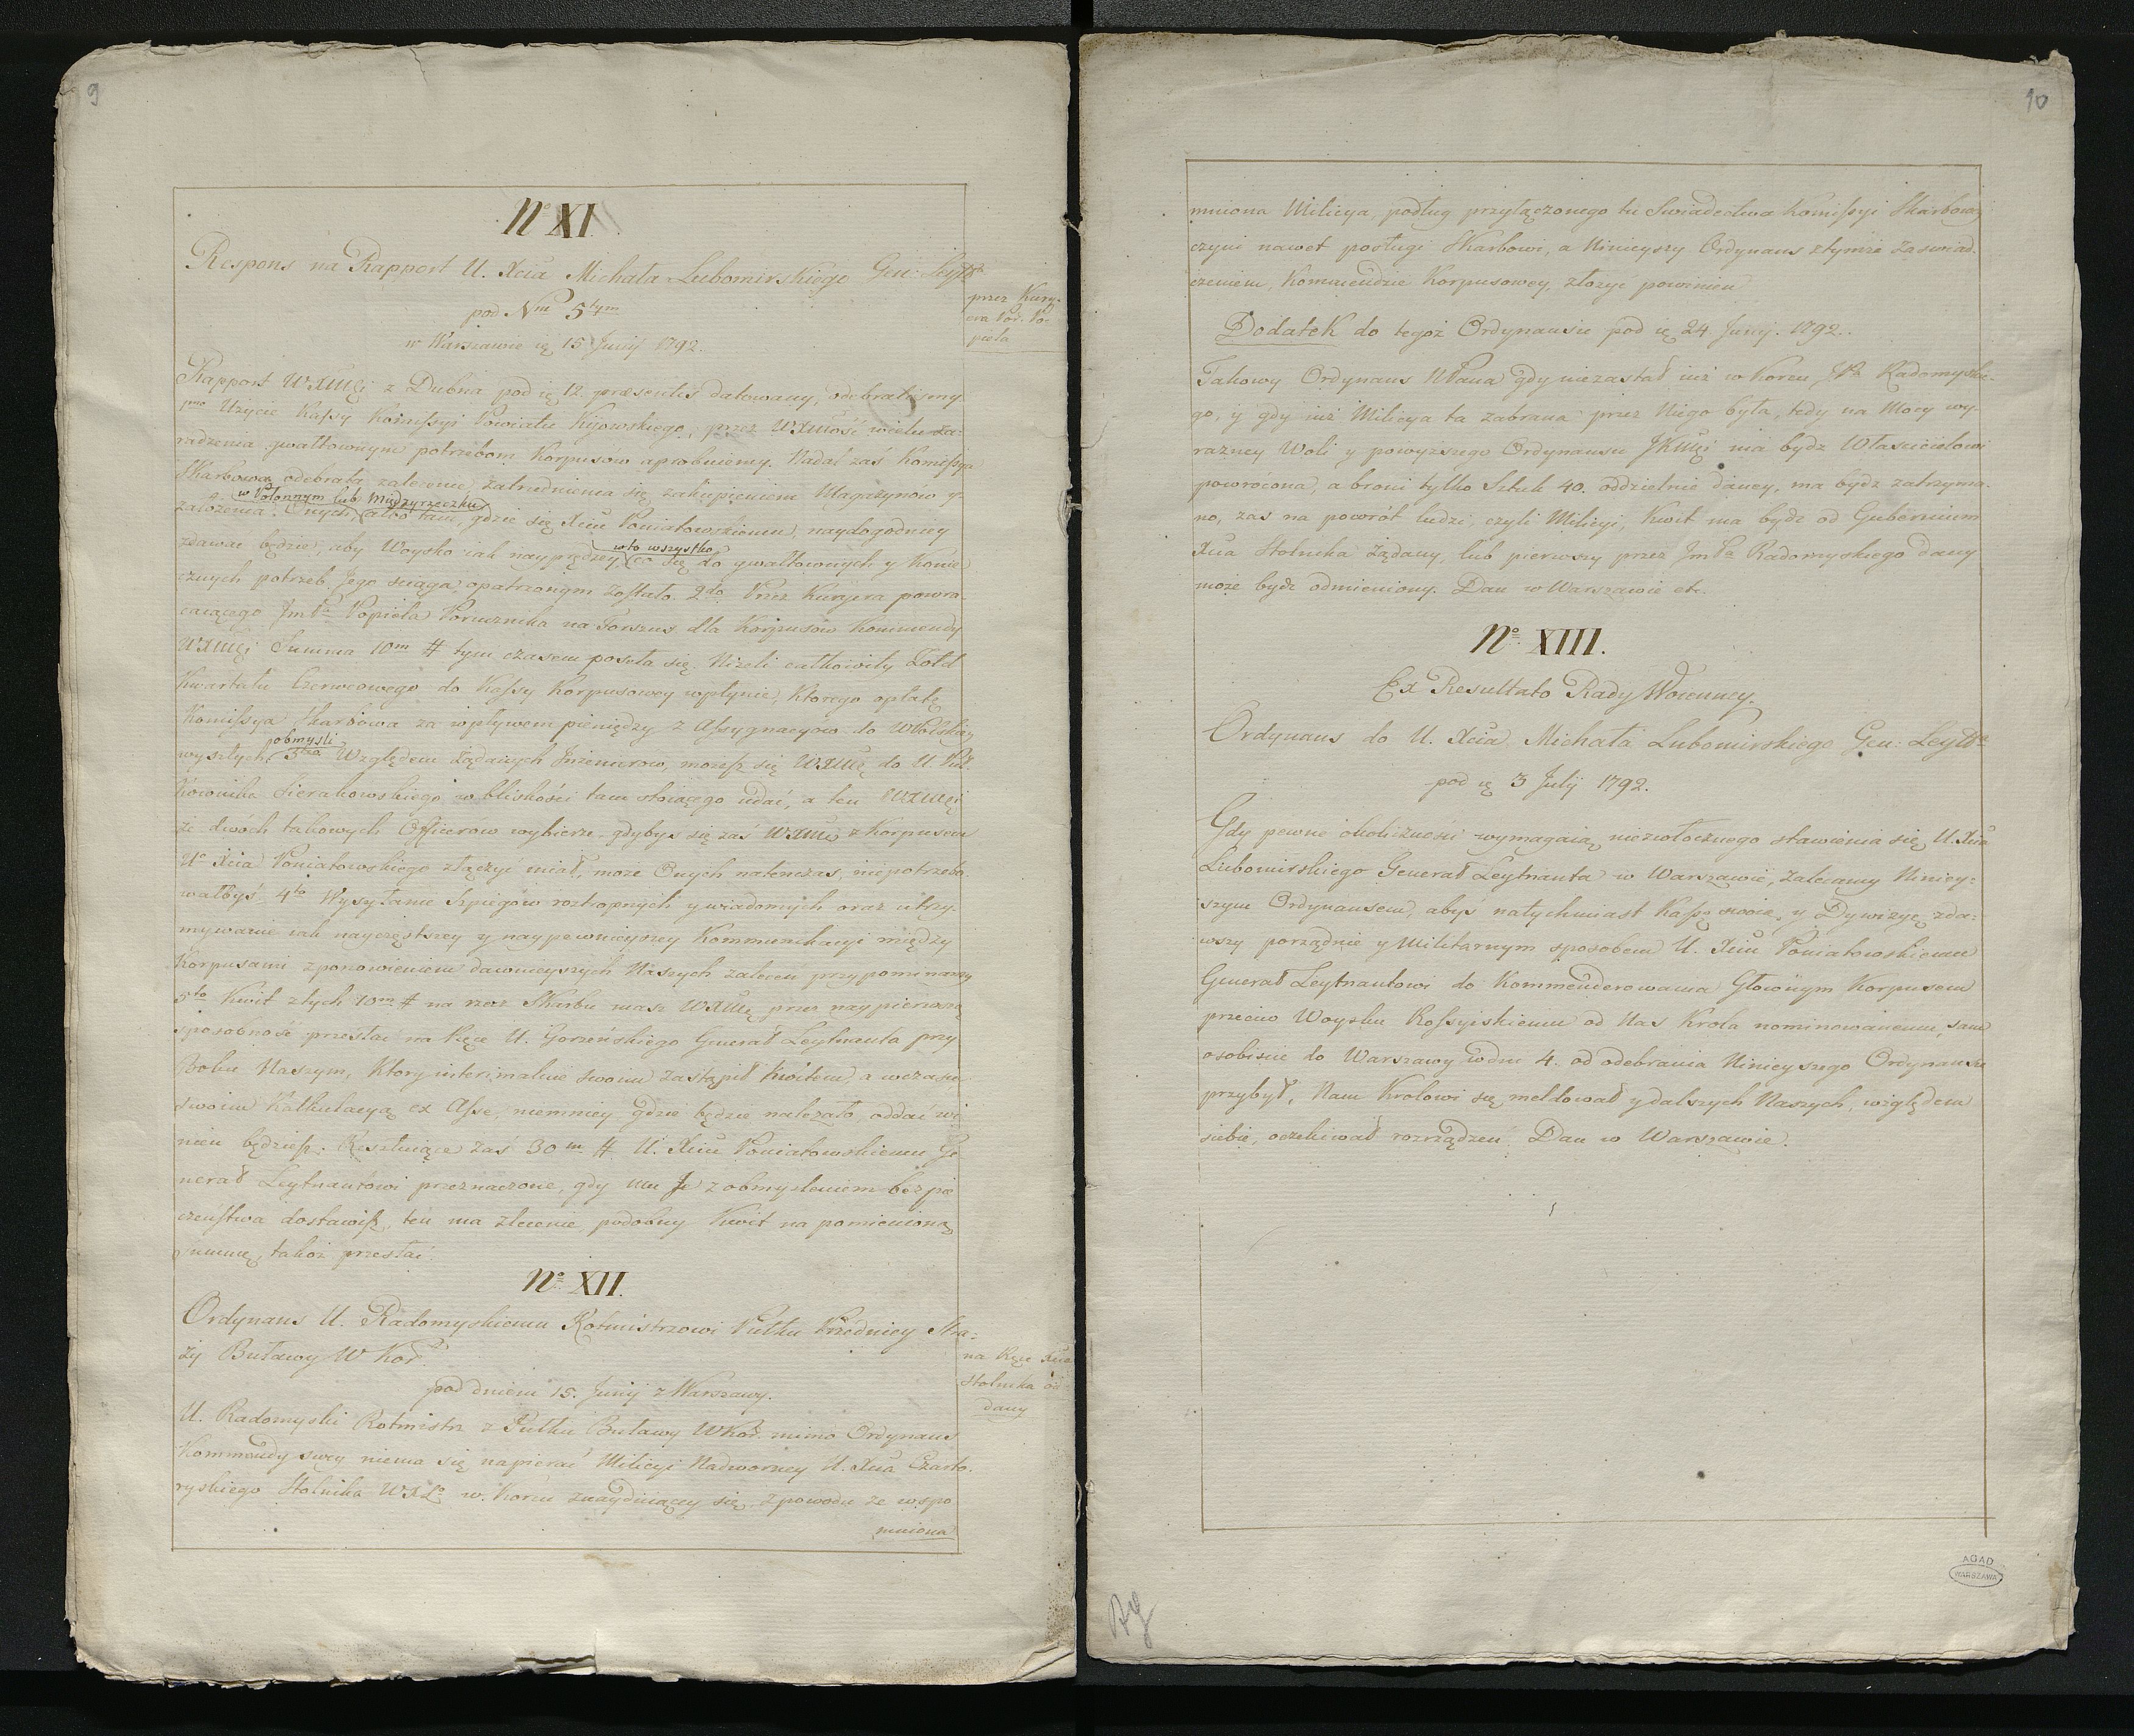 9
No XI.
Respons na Rapport U. Xcia Michała Lubomirskiego Gen: Leytta
pod Nm 5tym
w Warszawie ię 15 Junij 1792.
przez Kury-
era Por. Po-
piela
Rapport WXMCi z Dubna pod ię 12. præsentis datowany, odebraliśmy
1mo Użycie Kassy Komissyi Powiatu Kijowskiego, przez WXMość wielu za-
radzenia gwałtownym potrzebom Korpusów aprobuiemy. Nadal zaś Komissya
Skarbowa odebrała zalecenie, zatrudnienia się zakupieniem Magazynów y
w Połonnym lub Międzyrzeczku
założenia Onych, albo tam, gdzie się Xciu Poniatowskiemu naydogodniey
zdawać będzie, aby Woysko iak nayprędzey
w to wszystko
co się do gwałtownych y Konie-
cznych potrzeb Jego sciąga, opatrzonym zostało. 2do Przez Kuryera powra-
caiącego JmPa Popiela Porucznika na Forszus dla Korpusów Kommendy
WXMCi Summa 10m # tym czasem poseła się, Nizeli całkowity Żołd
Kwartału Czerwcowego do Kassy Korpusowey wpłynie, Ktorego opłatę
Komissya Skarbowa za wpływem pieniędzy z Assygnacyów do WPolskiey
obmyśli
wyszłych. 3tio Względem żądanych Inzenierow, mozesz się WXMć do U. Puł-
kownika Sierakowskiego w bliskości tam stoiącego udać, a ten WXMCi
ze dwóch takowych Officerów wybierze. gdybyś się zaś WXMć z Korpusem
Uo Xcia Poniatowskiego złączyć miał, moze Onych natenczas, niepotrzebo-
wałbyś. 4to Wysyłanie Szpiegów roztropnych y wiadomych oraz utrzy-
mywanie iak nayczęstszey y naypewnieyszey Kommunikacyi między
Korpusami z ponowieniem dawnieyszych Naszych zaleceń przypominamy
5to Kwit z tych 10m # na rzecz Skarbu masz WXMć przez naypierwszą
sposobność przesłać na Ręce U. Gorzeńskiego Generał Leytnanta przy
Boku Naszym, Ktory interimalnie swoim zastąpił Kwitem, a w czasie
swoim Kalkulacyą ex Asse, niemniey gdzie będzie nalezało, oddać wi-
nien będziesz. Resztuiące zaś 30m # U. Xciu Poniatowskiemu Ge-
nerał Leytnantowi przeznaczone, gdy mu Je z obmysleniem bezpie-
czeństwa dostawisz, ten ma zlecenie podobny Kwit na pomienioną
summę, takoż przesłać.
No XII.
Ordynans U. Radomyskiemu Rotmistrzowi Pułku Przedniey Stra-
ży Buławy W Kor
pod dniem 15. Junij z Warszawy.
na Ręce Xcia
Stolnika od-
dany
U. Radomyski Rotmistrz z Pułku Buławy WKor. mimo Ordynans
Kommendy swey niema się napierać Milicyi Nadworney U. Xcia Czarto-
ryskiego Stolnika WXLo w. Korcu znayduiącey się, z powodu że wspo-
mniona
10
mniona Milicya, podług przyłączonego tu Świadectwa Komissyi Skarbowey
czyni nawet posługi Skarbowi, a Ninieyszy Ordynans z tymże zaświad-
czeniem, Kommendzie Korpusowey, złożyć powinien
Dodatek do tegoż Ordynansu pod ię 24 Junij. 1792.
Takowy Ordynans WPana gdy niezastał iuż w Korcu JPa Radomyskie-
go, y gdy iuż Milicya ta zabrana przez Niego była, tedy na Mocy wy-
razney Woli y powyższego Ordynansu JKMCi ma bydź Włascicielowi
powrócona, a broni tylko Sztuk 40. oddzielnie daney, ma bydź zatrzyma-
no, zaś na powrót ludzi, czyli Milicyi, Kwit ma bydź od Gubernium
Xcia Stolnika żądany, lub pierwszy przez JmPa Radomyskiego dany
może bydź odmieniony. Dan w Warszawie etc.
No. XIII.
Ex Resultato Rady Woienney.
Ordynans do U. Xcia Michała Lubomirskiego Gen: Leytta
pod ię 3 Julij 1792.
Gdy pewne okoliczności wymagaią niezwłocznego stawienia się U. Xcia
Lubomirskiego Generał Leytnanta w Warszawie, zalecamy Niniey-
szym Ordynansem, abyś natychmiast Kassę swoię y Dywizyę zda-
wszy porządnie y Militarnym sposobem U. Xciu Poniatowskiemu
Generał Leytnantowi do Kommenderowania Głownym Korpusem
przeciw Woysku Rossyiskiemu od Nas Krola nominowanemu, sam
osobiscie do Warszawy w dni 4. od odebrania Ninieyszego Ordynansu
przybył, Nam Krolowi się meldował y dalszych Naszych, względem
siebie, oczekiwał rozrządzeń. Dan w Warszawie.
AGAD
WARSZAWA